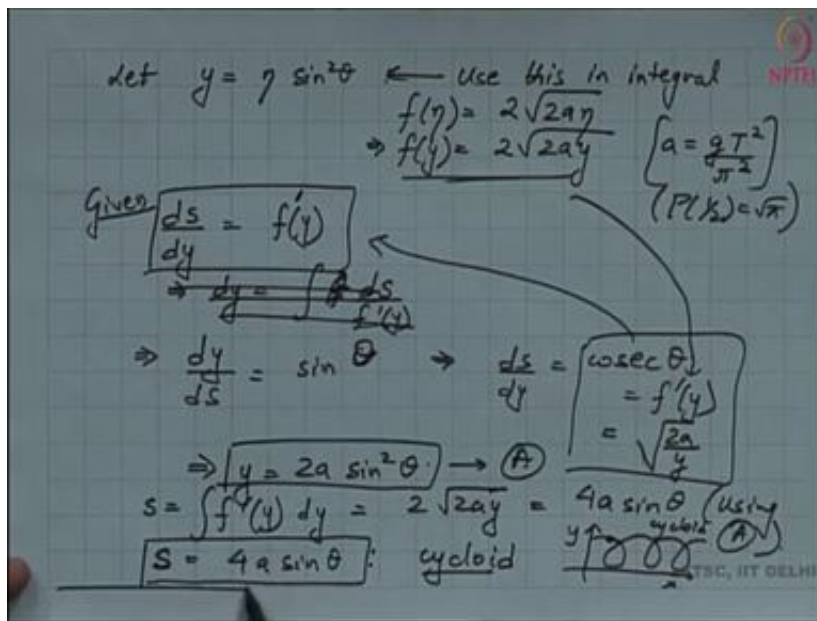 Let y = η sin²θ ← use this in integral
NPTEL
f(η) = 2√2aη
⇒ f(y) = 2√2ay [a = gT²/π²]
(Γ(1/2) = √π)
Given ds/dy = f'(y)
⇒ dy = ∫ ds/f'(y)
⇒ dy/ds = sin θ → ds/dy = cosec θ
= f'(y)
= √2a/y
⇒ y = 2a sin²θ → Ⓐ
s = ∫f'(y) dy = 2√2ay = 4a sin θ (using Ⓐ)
S = 4a sin θ : cycloid
y cycloid
TSC, IIT DELHI